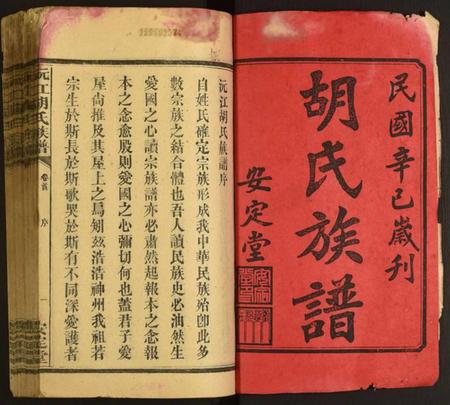 民國辛巳歲刊
胡氏族譜
安定堂
沅江胡氏族譜序
自姓氏確定宗族形成我中華民族殆卽此多
數宗族之結合體也吾人讀民族史必油然生
愛國之心讀宗族譜亦必肅然起報本之念報
本之念愈殷則愛國之心彌切何也蓋君子愛
屋尙推及其屋上之烏矧茲浩浩神州我祖若
宗生於斯長於斯歌哭於斯有不同深愛護者
沅江胡氏族譜
卷首
序
一
安定堂